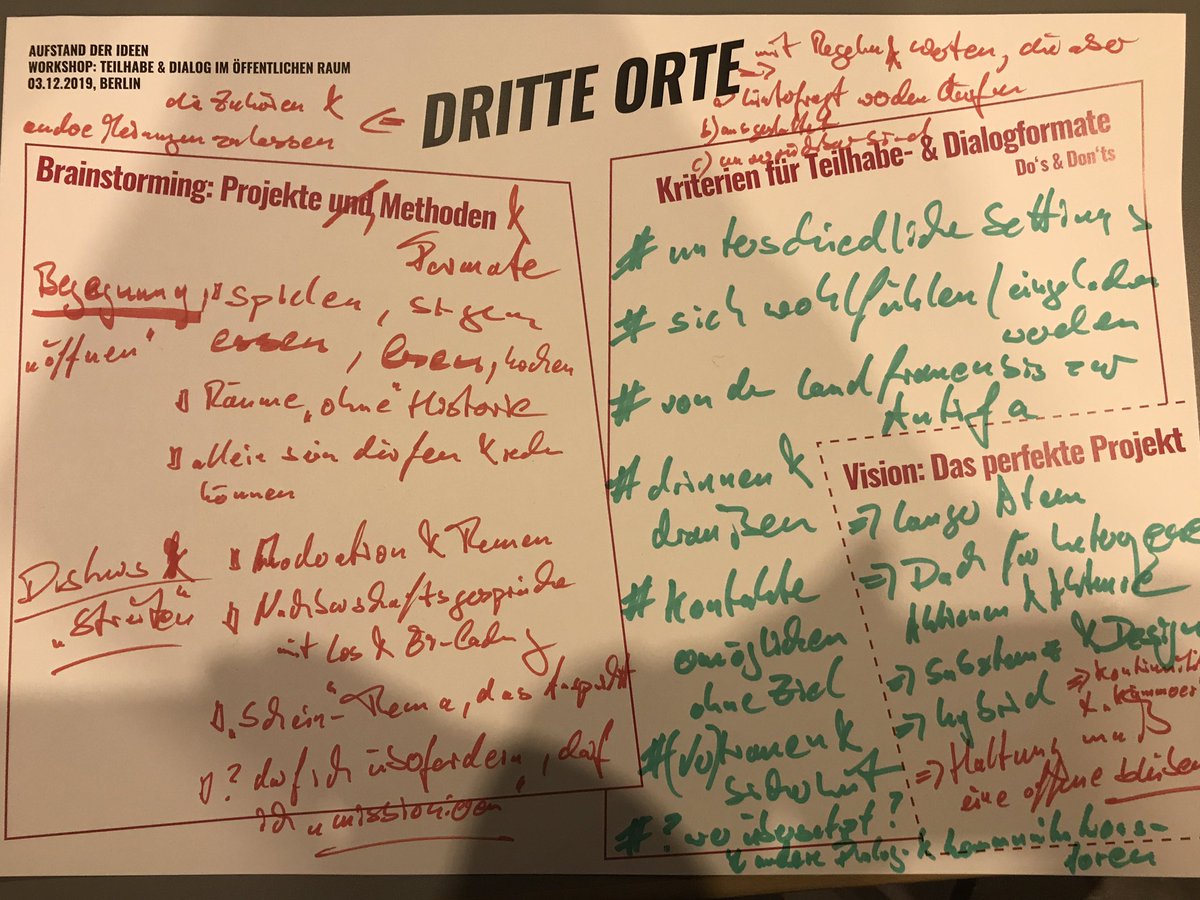 AUFSTAND DER IDEEN
WORKSHOP: TEILHABE & DIALOG IM ÖFFENTLICHEN RAUM
03.12.2019, BERLIN
DRITTE ORTE
die Zuhören &
andere Meinungen zulassen
mit Regeln & Werten, die aber
a) hinterfragt werden dürfen
b) ausgestaltet
c)
Brainstorming: Projekte und Methoden &
Formate
Begegnung
"öffnen"
spielen, singen
essen, lesen, kochen
Räume "ohne" Historie
allein sein dürfen & reden
können
Diskurs &
"streiten"
Moderation & Themen
Nachbarschaftsgespräche
mit Los & Einladung
"Schein-"Thema, das
? darf ich überfordern, darf
ich "missionieren"
Kriterien für Teilhabe- & Dialogformate
Do's & Don'ts
# unterschiedliche Settings
# sich wohlfühlen / eingeladen
werden
# von den Landfrauen bis zur
Antifa
# drinnen &
draußen
# Kontakte
ermöglichen
ohne Ziel
# (Ver)trauen &
Sicherheit
# ? wer übersetzt?
& andere Dialog- & Kommunikations-
foren
Vision: Das perfekte Projekt
=> langer Atem
=> Dach für heterogene
Aktionen & Akteure
=> Substanz & Design
=> hybrid
=> Kontinuität
& Kümmerer
=> Haltung muss
eine offene bleiben